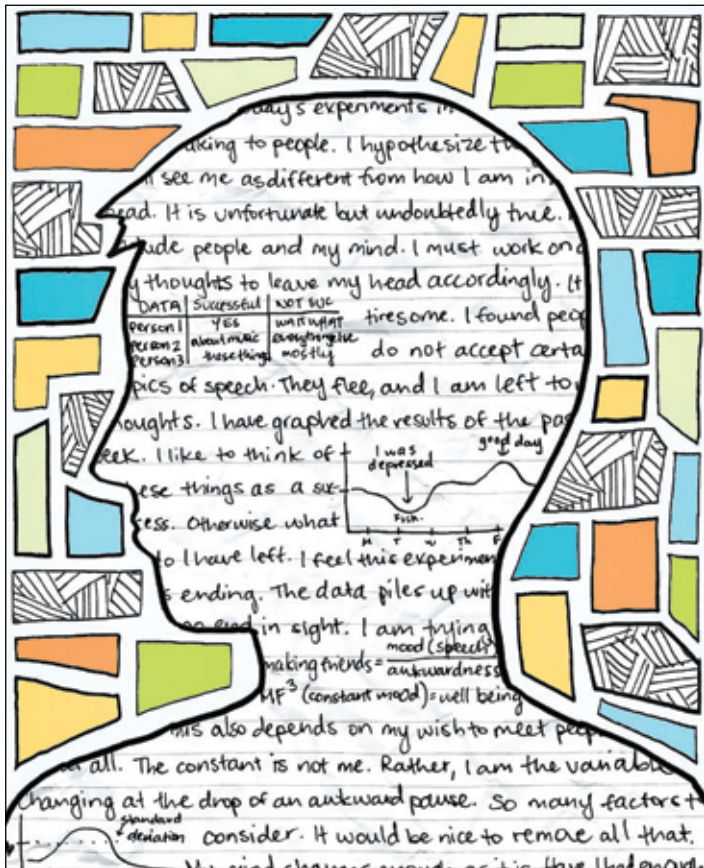 day's experiments in
aking to people. I hypothesize th
see me as different from how I am in
ead. It is unfortunate but undoubtedly true.
lude people and my mind. I must work on
y thoughts to leave my head accordingly. It
DATA Successful NOT SUC
person 1 YES
person 2 about music everything else
person 3 these things mostly
tiresome. I found peop
do not accept certa
pics of speech. They flee, and I am left to
oughts. I have graphed the results of the pas
eek. I like to think of
these things as a suc-
cess. Otherwise what
I was depressed
good day
M T W Th F
do I have left. I feel this experimen
s ending. The data piles up wit
no end in sight. I am trying
making friends = mood (speech)
awkwardness
MF³ (constant mood) = well being
his also depends on my wish to meet peop
all. The constant is not me. Rather, I am the variable
changing at the drop of an awkward pause. So many factors t
standard deviation
consider. It would be nice to remove all that.
My mind changes enough as it is. Have I had enough